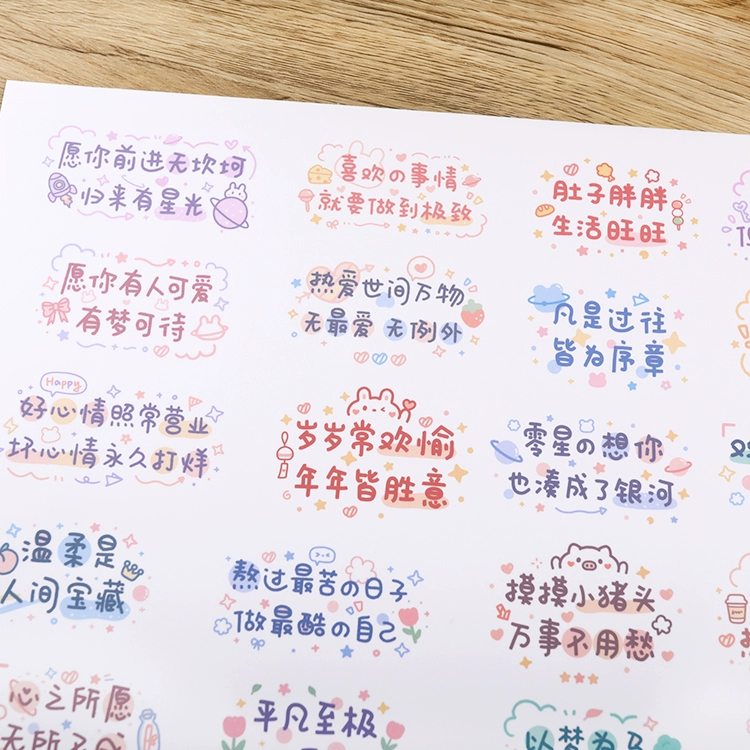 愿你前进无坎坷
归来有星光
喜欢の事情
就要做到极致
肚子胖胖
生活旺旺
愿你有人可爱
有梦可待
热爱世间万物
无最爱 无例外
凡是过往
皆为序章
Happy
好心情照常营业
坏心情永久打烊
岁岁常欢愉
年年皆胜意
零星の想你
也凑成了银河
温柔是
人间宝藏
熬过最苦の日子
做最酷の自己
摸摸小猪头
万事不用愁
心之所愿
无所不
平凡至极
以梦为马